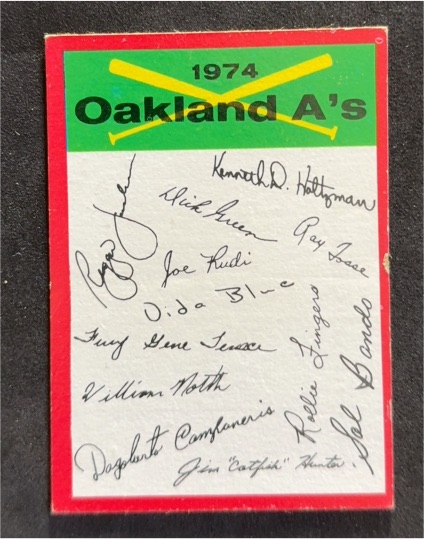 1974
Oakland A's
Kenneth D. Holtzman
Reggie Jackson
Dick Green
Ray Fosse
Joe Rudi
Vida Blue
Fury Gene Tenace
Rollie Fingers
Sal Bando
William North
Dagoberto Campaneris
Jim "Catfish" Hunter